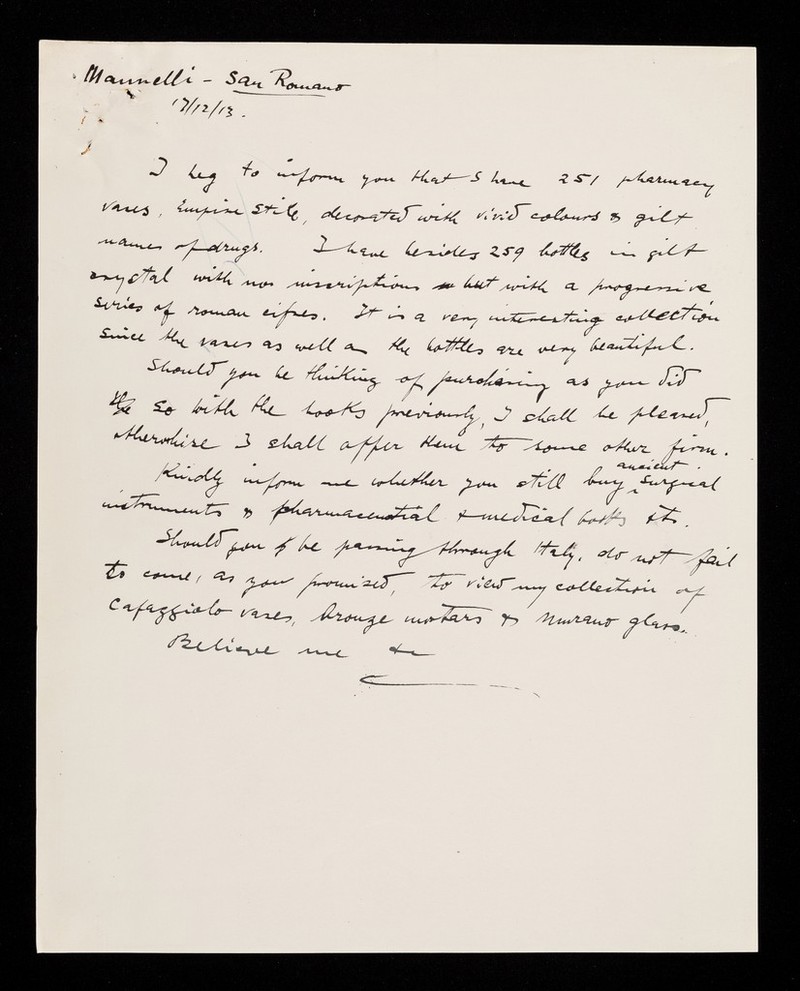 Mannelli - San Romano
17/12/13.
I beg to inform you that I have 251 pharmacy
vases, Empire Stile, decorated with vivid colours & gilt
names of drugs. I have besides 259 bottles in gilt
crystal with no inscriptions but with a progressive
series of roman cifres. It is a very interesting collection
since the vases as well as the botttles are very beautiful.
Should you be thinking of purchasing as you did
so with the books previously, I shall be pleased,
otherwhise I shall offer them to some other firm.
Kindly inform me whether you still buy ancient surgical
instruments & pharmaceutial & medical books etc.
Should you be passing through Italy, do not fail
to come, as you promised, to view my collection of
Cafaggiolo vases, bronze motars & Murano glass.
Believe me &c